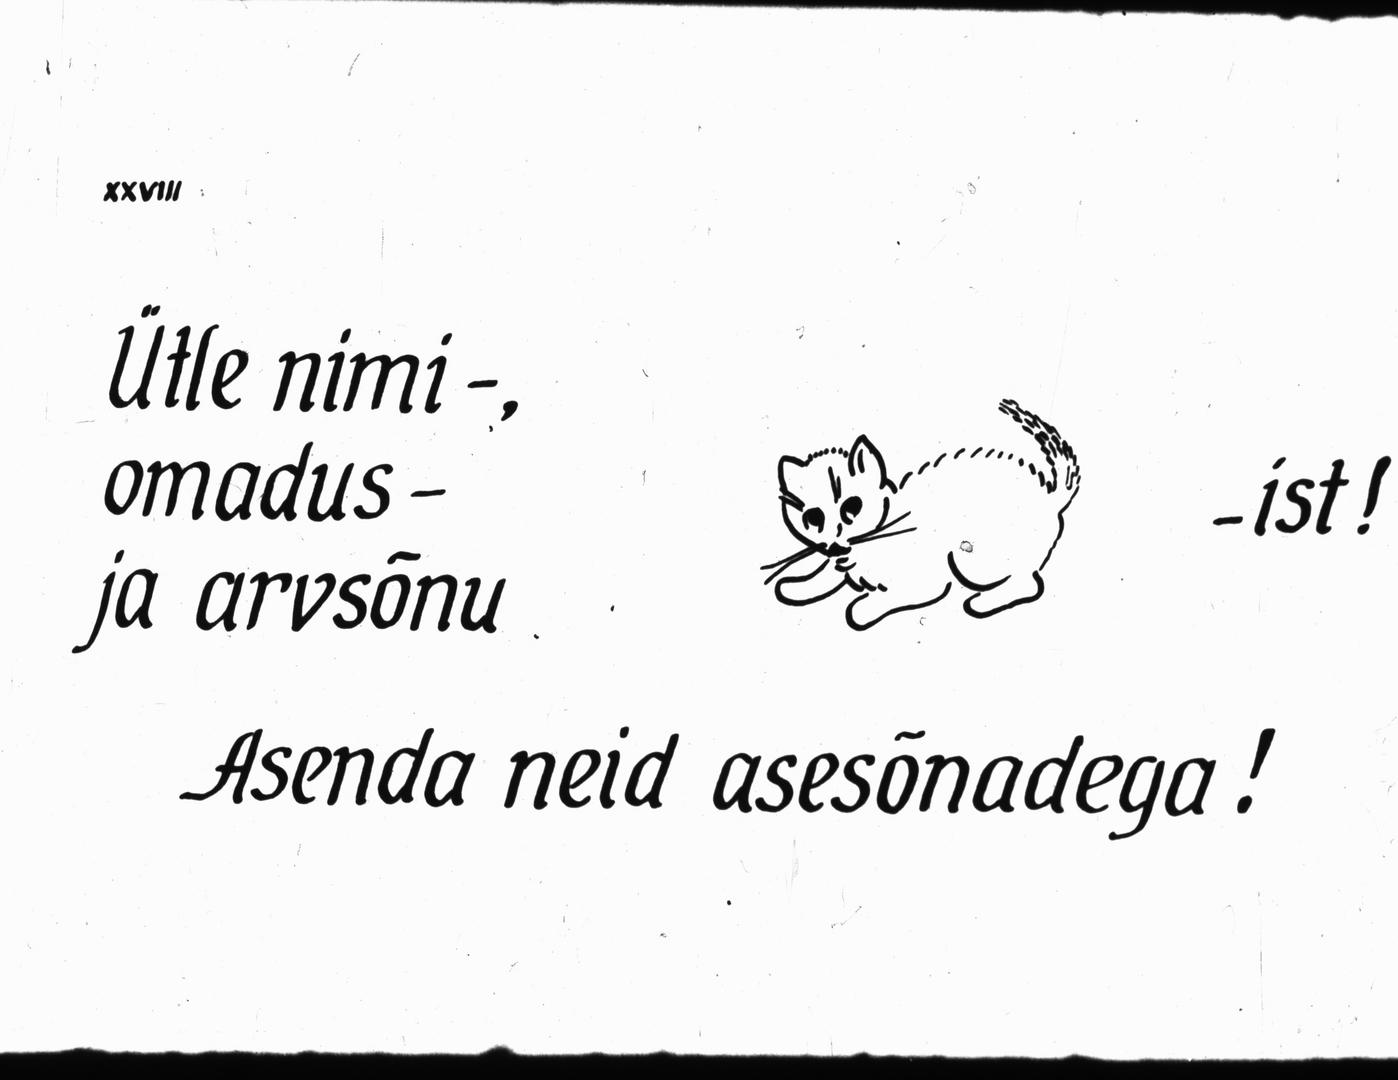 XXVIII
Ütle nimi-,
omadus-
ja arvsõnu
-ist!
Asenda neid asesõnadega!